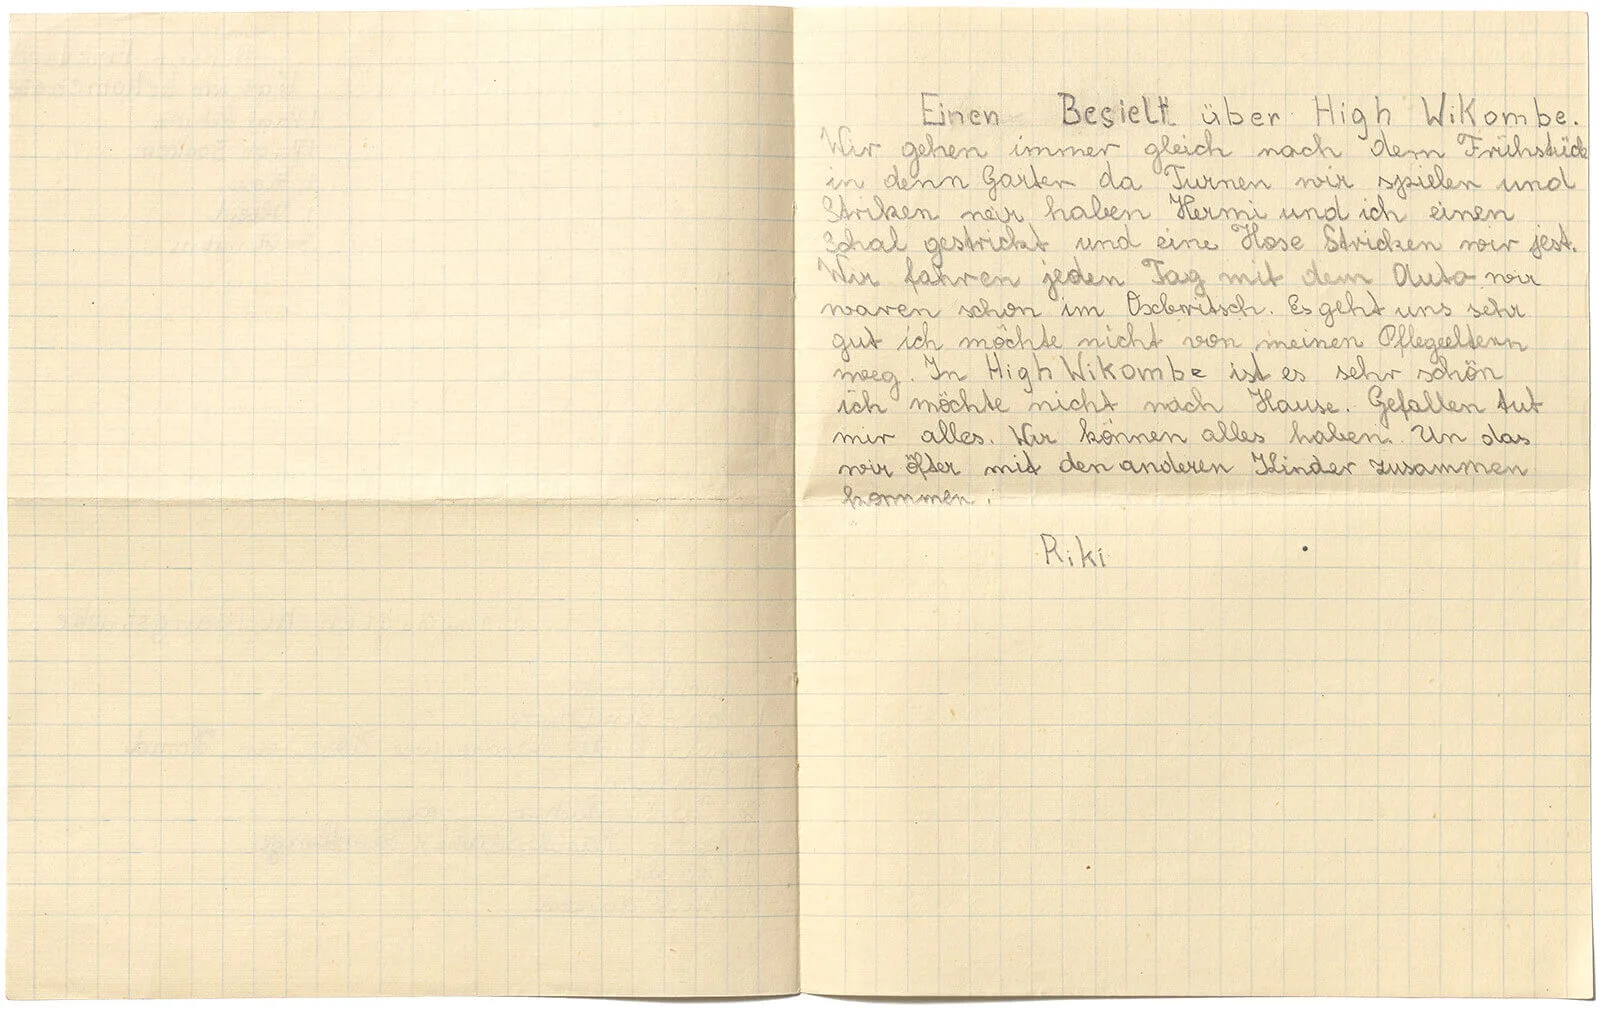 Einen Besielt über High WiKombe.
Wir gehen immer gleich nach dem Frühstück
in denn Garten da Turnen wir spielen und
Striken neir haben Hermi und ich einen
Schal gestrickt und eine Hose Stricken wir jest.
Wir fahren jeden Tag mit dem Auto wir
waren schon im Oxbritsch. Es geht uns sehr
gut ich möchte nicht von meinen Pflegeeltern
weg. In High WiKombe ist es sehr schön
ich möchte nicht nach Hause. Gefallen tut
mir alles. Wir können alles haben. Un das
wir öfter mit den anderen Kinder zusammen
kommen.
Riki